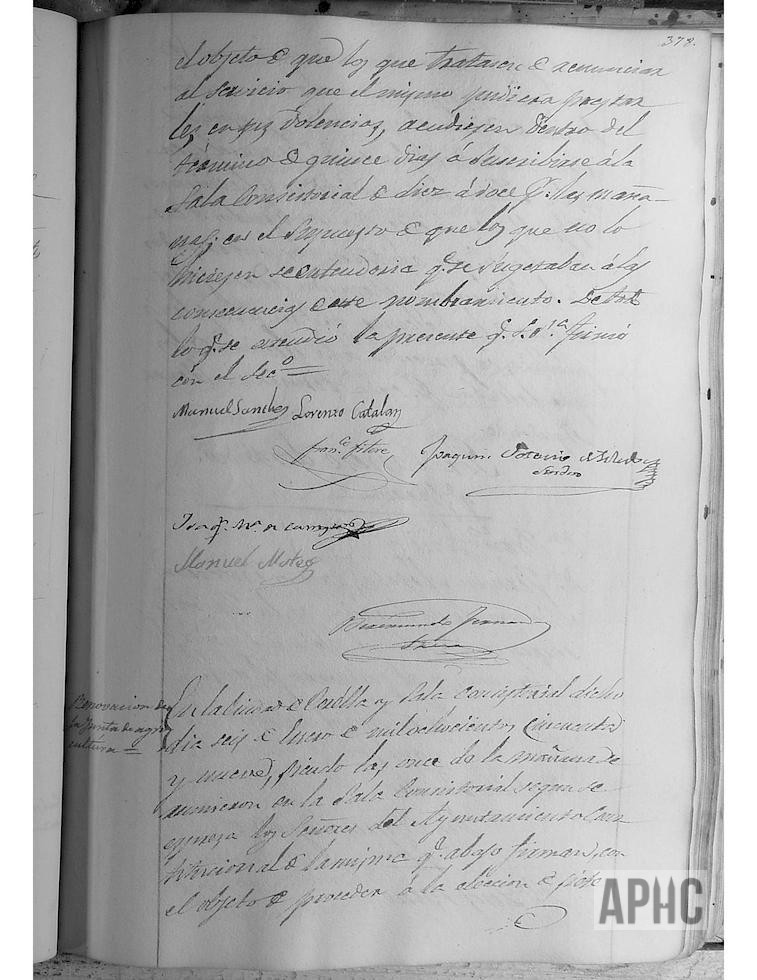 378.
el objeto de que los que tratasen de renunciar
al servicio que el mismo pudiera prestar
les en sus dolencias, acudiesen dentro del
término de quince dias á suscribirse á la
Sala Consistorial de diez á doce p.r las maña-
nas; en el supuesto de que los que no lo
hiciesen se entenderia q.e se sugetaban á las
consecuencias de este nombramiento. De todo
lo q.e se estendió la presente q.e S.S.ria firmó
con el Sec.o
Manuel Sanchez Lorenzo Catalan
Fran.co Joaquin Octavio de Toledo
Joaq.n M.a de
Manuel Mateo
Raimundo
Renovacion de
la Junta de agri
cultura
En la Ciudad de Corella y Sala Consistorial dicho
dia seis de Enero de mil ochocientos cincuenta
y nueve, siendo las once de la mañana se
reunieron en la Sala Consistorial segun se
espresa los Señores del Ayuntamiento Cons
titucional de la misma q.e abajo firman, con
el objeto de proceder á la eleccion de siete
APHC